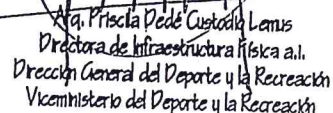 Arq. Priscila Dedé Custodio Lemus
Directora de Infraestructura Física a.i.
Dirección General del Deporte y la Recreación
Viceministerio del Deporte y la Recreación